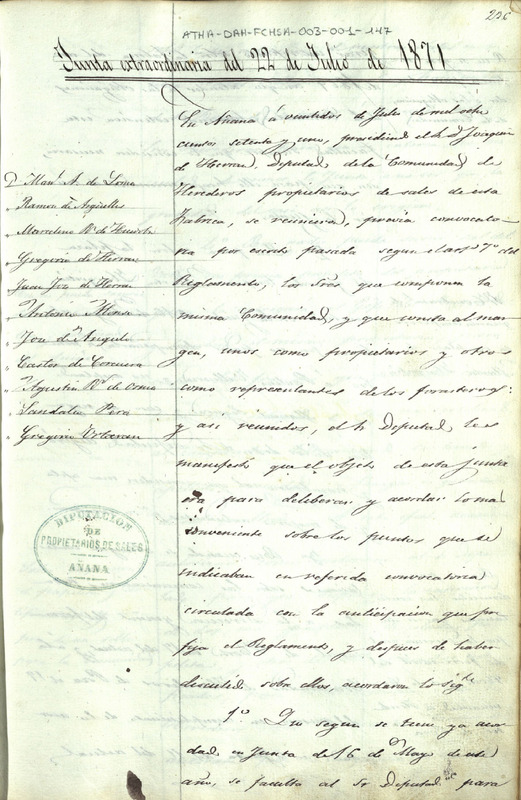 226
ATHA-DAH-FCHSA-003-001-147
Junta extraordinaria del 22 de Julio de 1871
En Añana á veintidos de Julio de mil ocho
cientos setenta y uno, presidiend el Sr. D. Joaquin
de Herran, Diputad de la Comunidad de
Herederos propietarios de sales de esta
fabrica, se reunieron, previa convocato-
ria por escrito pasada segun el artº 7º del
Reglamento, los Sres que componen la
misma Comunidad, y que consta al mar-
gen, unos como propietarios y otros
como representantes de los forasteros:
y asi reunidos, el Sr Diputad les
manifestó que el objeto de esta junta
era para deliberar y acordar lo mas
conveniente sobre los puntos que se
indicaban en referida convocatoria
circulada con la anticipacion que pre-
fija el Reglamento, y despues de haber
discutid sobre ellos, acordaron lo sigte
1º. Que segun se tiene ya acor-
dad en Junta de 16 de Mayo de este
año, se faculta al Sr Diputad para
D. Manl. A. de
Ramon de Argüelles
Marcelino Rz de
Gregorio de Herran
Juan Jose de Herran
Antonio
Jose de Angulo
Castor de Corcuera
Agustin Rz de Osma
Sandalio
Gregorio Ortaran
DIPUTACION
DE
PROPIETARIOS DE SALES
AÑANA